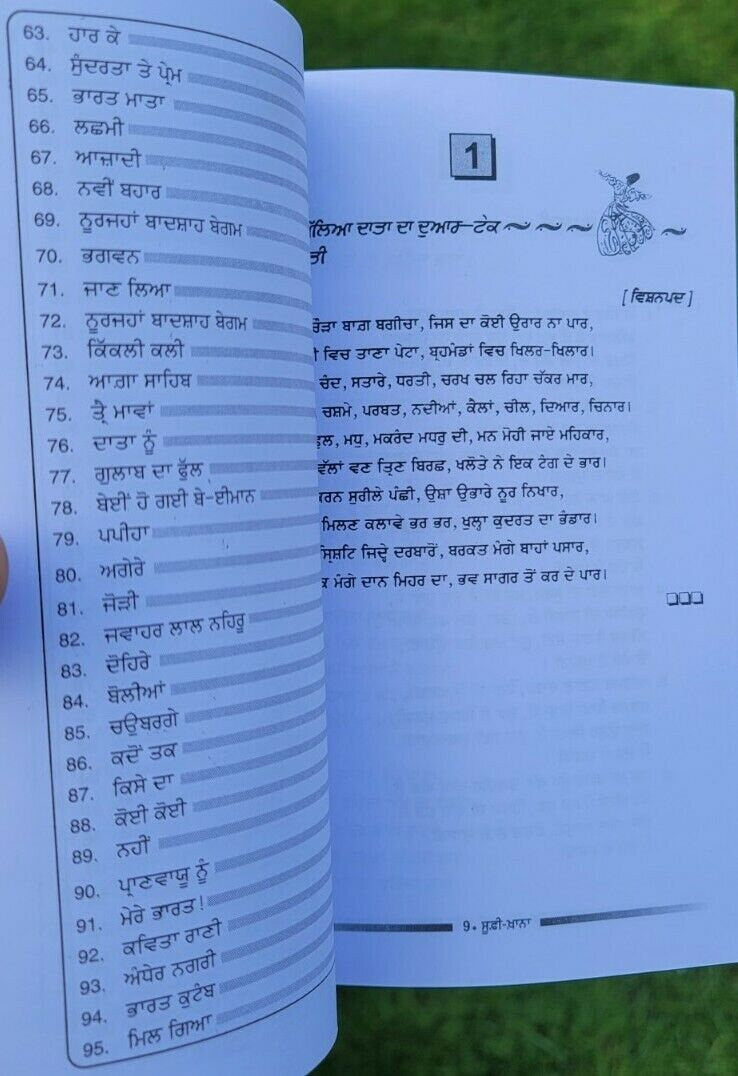 63. ਹਾਰ ਕੇ
64. ਸੁੰਦਰਤਾ ਤੇ ਪ੍ਰੇਮ
65. ਭਾਰਤ ਮਾਤਾ
66. ਲਛਮੀ
67. ਆਜ਼ਾਦੀ
68. ਨਵੀਂ ਬਹਾਰ
69. ਨੂਰਜਹਾਂ ਬਾਦਸ਼ਾਹ ਬੇਗਮ
70. ਭਗਵਨ
71. ਜਾਣ ਲਿਆ
72. ਨੂਰਜਹਾਂ ਬਾਦਸ਼ਾਹ ਬੇਗਮ
73. ਕਿੱਕਲੀ ਕਲੀ
74. ਆਗ਼ਾ ਸਾਹਿਬ
75. ਤ੍ਰੈ ਮਾਵਾਂ
76. ਦਾਤਾ ਨੂੰ
77. ਗੁਲਾਬ ਦਾ ਫੁੱਲ
78. ਬੇਈਂ ਹੋ ਗਈ ਬੇ-ਈਮਾਨ
79. ਪਪੀਹਾ
80. ਅਗੇਰੇ
81. ਜੋੜੀ
82. ਜਵਾਹਰ ਲਾਲ ਨਹਿਰੂ
83. ਦੋਹਿਰੇ
84. ਬੋਲੀਆਂ
85. ਚਉਬਰਗੇ
86. ਕਦੋਂ ਤਕ
87. ਕਿਸੇ ਦਾ
88. ਕੋਈ ਕੋਈ
89. ਨਹੀਂ
90. ਪ੍ਰਾਣਵਾਯੂ ਨੂੰ
91. ਮੇਰੇ ਭਾਰਤ!
92. ਕਵਿਤਾ ਰਾਣੀ
93. ਅੰਧੇਰ ਨਗਰੀ
94. ਭਾਰਤ ਕੁਟੰਬ
95. ਮਿਲ ਗਿਆ
1
ਦਾਤਾ ਦਾ ਦੁਆਰ—ਟੇਕ
[ਵਿਸ਼ਨਪਦ]
ਬਾਗ਼ ਬਗੀਚਾ, ਜਿਸ ਦਾ ਕੋਈ ਉਰਾਰ ਨਾ ਪਾਰ,
ਵਿਚ ਤਾਣਾ ਪੇਟਾ, ਬ੍ਰਹਮੰਡਾਂ ਵਿਚ ਖਿਲਰ-ਖਿਲਾਰ।
ਚੰਦ, ਸਤਾਰੇ, ਧਰਤੀ, ਚਰਖ ਚਲ ਰਿਹਾ ਚੱਕਰ ਮਾਰ,
ਚਸ਼ਮੇ, ਪਰਬਤ, ਨਦੀਆਂ, ਕੈਲਾਂ, ਚੀਲ, ਦਿਆਰ, ਚਿਨਾਰ।
ਮਧੁ, ਮਕਰੰਦ ਮਧਰੁ ਦੀ, ਮਨ ਮੋਹੀ ਜਾਏ ਮਹਿਕਾਰ,
ਵਣ ਤ੍ਰਿਣ ਬਿਰਛ, ਖਲੋਤੇ ਨੇ ਇਕ ਟੰਗ ਦੇ ਭਾਰ।
ਸੁਰੀਲੇ ਪੰਛੀ, ਉਸ਼ਾ ਉਭਾਰੇ ਨੂਰ ਨਿਖਾਰ,
ਮਿਲਣ ਕਲਾਵੇ ਭਰ ਭਰ, ਖੁਲ੍ਹਾ ਕੁਦਰਤ ਦਾ ਭੰਡਾਰ।
ਸ੍ਰਿਸ਼ਟਿ ਜਿਦ੍ਹੇ ਦਰਬਾਰੋਂ, ਬਰਕਤ ਮੰਗੇ ਬਾਹਾਂ ਪਸਾਰ,
ਮੰਗੇ ਦਾਨ ਮਿਹਰ ਦਾ, ਭਵ ਸਾਗਰ ਤੋਂ ਕਰ ਦੇ ਪਾਰ।
9. ਸੂਫ਼ੀ-ਖ਼ਾਨਾ